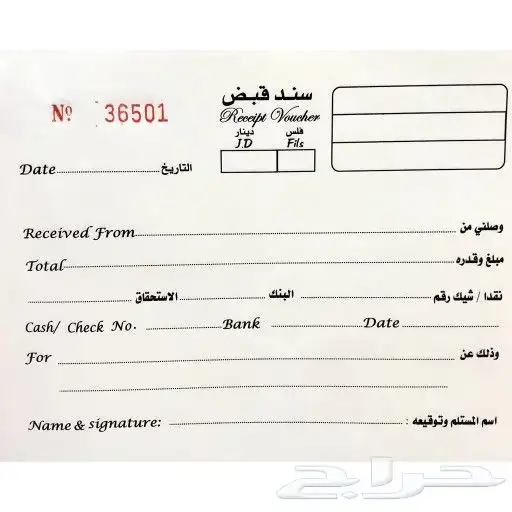 № 36501
سند قبض
Receipt Voucher
دينار فلس
J.D Fils
Date التاريخ
Received From وصلني من
Total مبلغ وقدره
نقدا / شيك رقم البنك الاستحقاق
Cash/ Check No. Bank Date
For وذلك عن
Name & signature: اسم المستلم وتوقيعه :
حراج